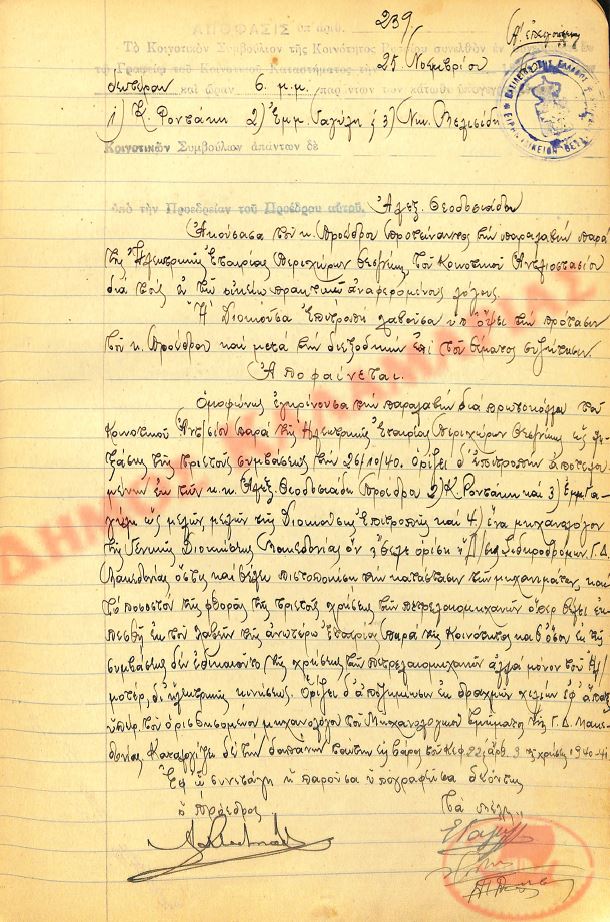 239
ΑΠΟΦΑΣΙΣ ὑπ' ἀριθ.
Τὸ Κοινοτικὸν Συμβούλιον τῆς Κοινότητος συνελθὸν ἐν
τῷ Γραφείῳ τοῦ Κοινοτικοῦ Καταστήματος τὴν 25 Νοεμβρίου
Δευτέραν καὶ ὥραν 6 μ.μ. παρόντων τῶν κάτωθι
1) Κ. Ροντάκη 2) Ἐμμ. Γαγύλη & 3) Νικ. Μελισίδη
Κοινοτικῶν Συμβούλων ἁπάντων δὲ
ὑπὸ τὴν Προεδρείαν τοῦ Προέδρου αὐτοῦ. Ἀλεξ. Θεοδοσιάδου
Ἀκούσασα τοῦ κ. Προέδρου προτείναντος τὴν παραλαβὴν παρὰ
τῆς Ἠλεκτρικῆς Ἑταιρίας Περιχώρων Θεσ/νίκης τοῦ Κοινοτικοῦ Ἀντλιοστασίου
διὰ τοὺς ἐν τῷ οἰκείῳ πρακτικῷ ἀναφερομένους λόγους.
Ἡ Διοικοῦσα Ἐπιτροπὴ λαβοῦσα ὑπ' ὄψει τὴν πρότασιν
τοῦ κ. Προέδρου καὶ μετὰ τὴν διεξοδικὴν ἐπὶ τοῦ θέματος συζήτησιν
Ἀποφαίνεται.
Ὁμοφώνως ἐγκρίνουσα τὴν παραλαβὴν διὰ πρωτοκόλλου τοῦ
Κοινοτικοῦ Ἀντ/σίου παρὰ τῆς Ἠλεκτρικῆς Ἑταιρίας Περιχώρων Θεσ/νίκης ὡς
τῆς τριετοῦς συμβάσεως τὴν 26/10/40. ὁρίζει δ' ἐπιτροπὴν ἀποτελου
μένην ἐκ τῶν κ.κ. Ἀλεξ. Θεοδοσιάδη Προέδρου 2) Κ. Ροντάκη καὶ 3) Ἐμμ Γα
γύλη ὡς μελῶν, μελῶν τῆς Διοικούσης Ἐπιτροπῆς καὶ 4) ἕνα μηχανολόγον
τῆς Γενικῆς Διοικήσεως Μακεδονίας ὃν ἤθελε ὁρίσει ἡ Δ/σις Σιδηροδρόμων Γ.Δ.
Μακεδονίας ὅστις καὶ θέλει πιστοποιήσει τὴν κατάστασιν τῶν μηχανημάτων, καὶ
τὸ ποσοστὸν τῆς φθορᾶς τῆς τριετοῦς χρήσεως τῶν πετρελαιομηχανῶν ὅπερ θέλει ἐκ
πεσθῇ ἐκ τοῦ τῆς ἀνωτέρω Ἑταιρία παρὰ τῆς Κοινότητος καθ' ὅσον ἐκ τῆς
συμβάσεως δὲν ἐδικαιοῦτο τῆς χρήσεως τῶν πετρελαιομηχανῶν ἀλλὰ μόνον τοῦ
μοτέρ, δι' ἠλεκτρικῆς κινήσεως. Ὁρίζει δ' ἀποζημίωσιν ἐκ δραχμῶν χιλίων ἐφ' ἅπαξ
ὑπὲρ τοῦ ὁρισθησομένου μηχανολόγου τοῦ Μηχανολογικοῦ τμήματος τῆς Γ.Δ. Μακε
δονίας Καταλογίζει δὲ τὴν δαπάνην ταύτην εἰς βάρος τοῦ Κεφ 22 ἄρθ. 3 τῆς χρήσεως 1940-41
Ἐφ' ᾧ συνετάγη ἡ παροῦσα ὑπογραφεῖσα δεόντως
ὁ Πρόεδρος
Τὰ μέλη
ΔΗΜΟΣ ΚΑΛΑΜΑΡΙΑΣ